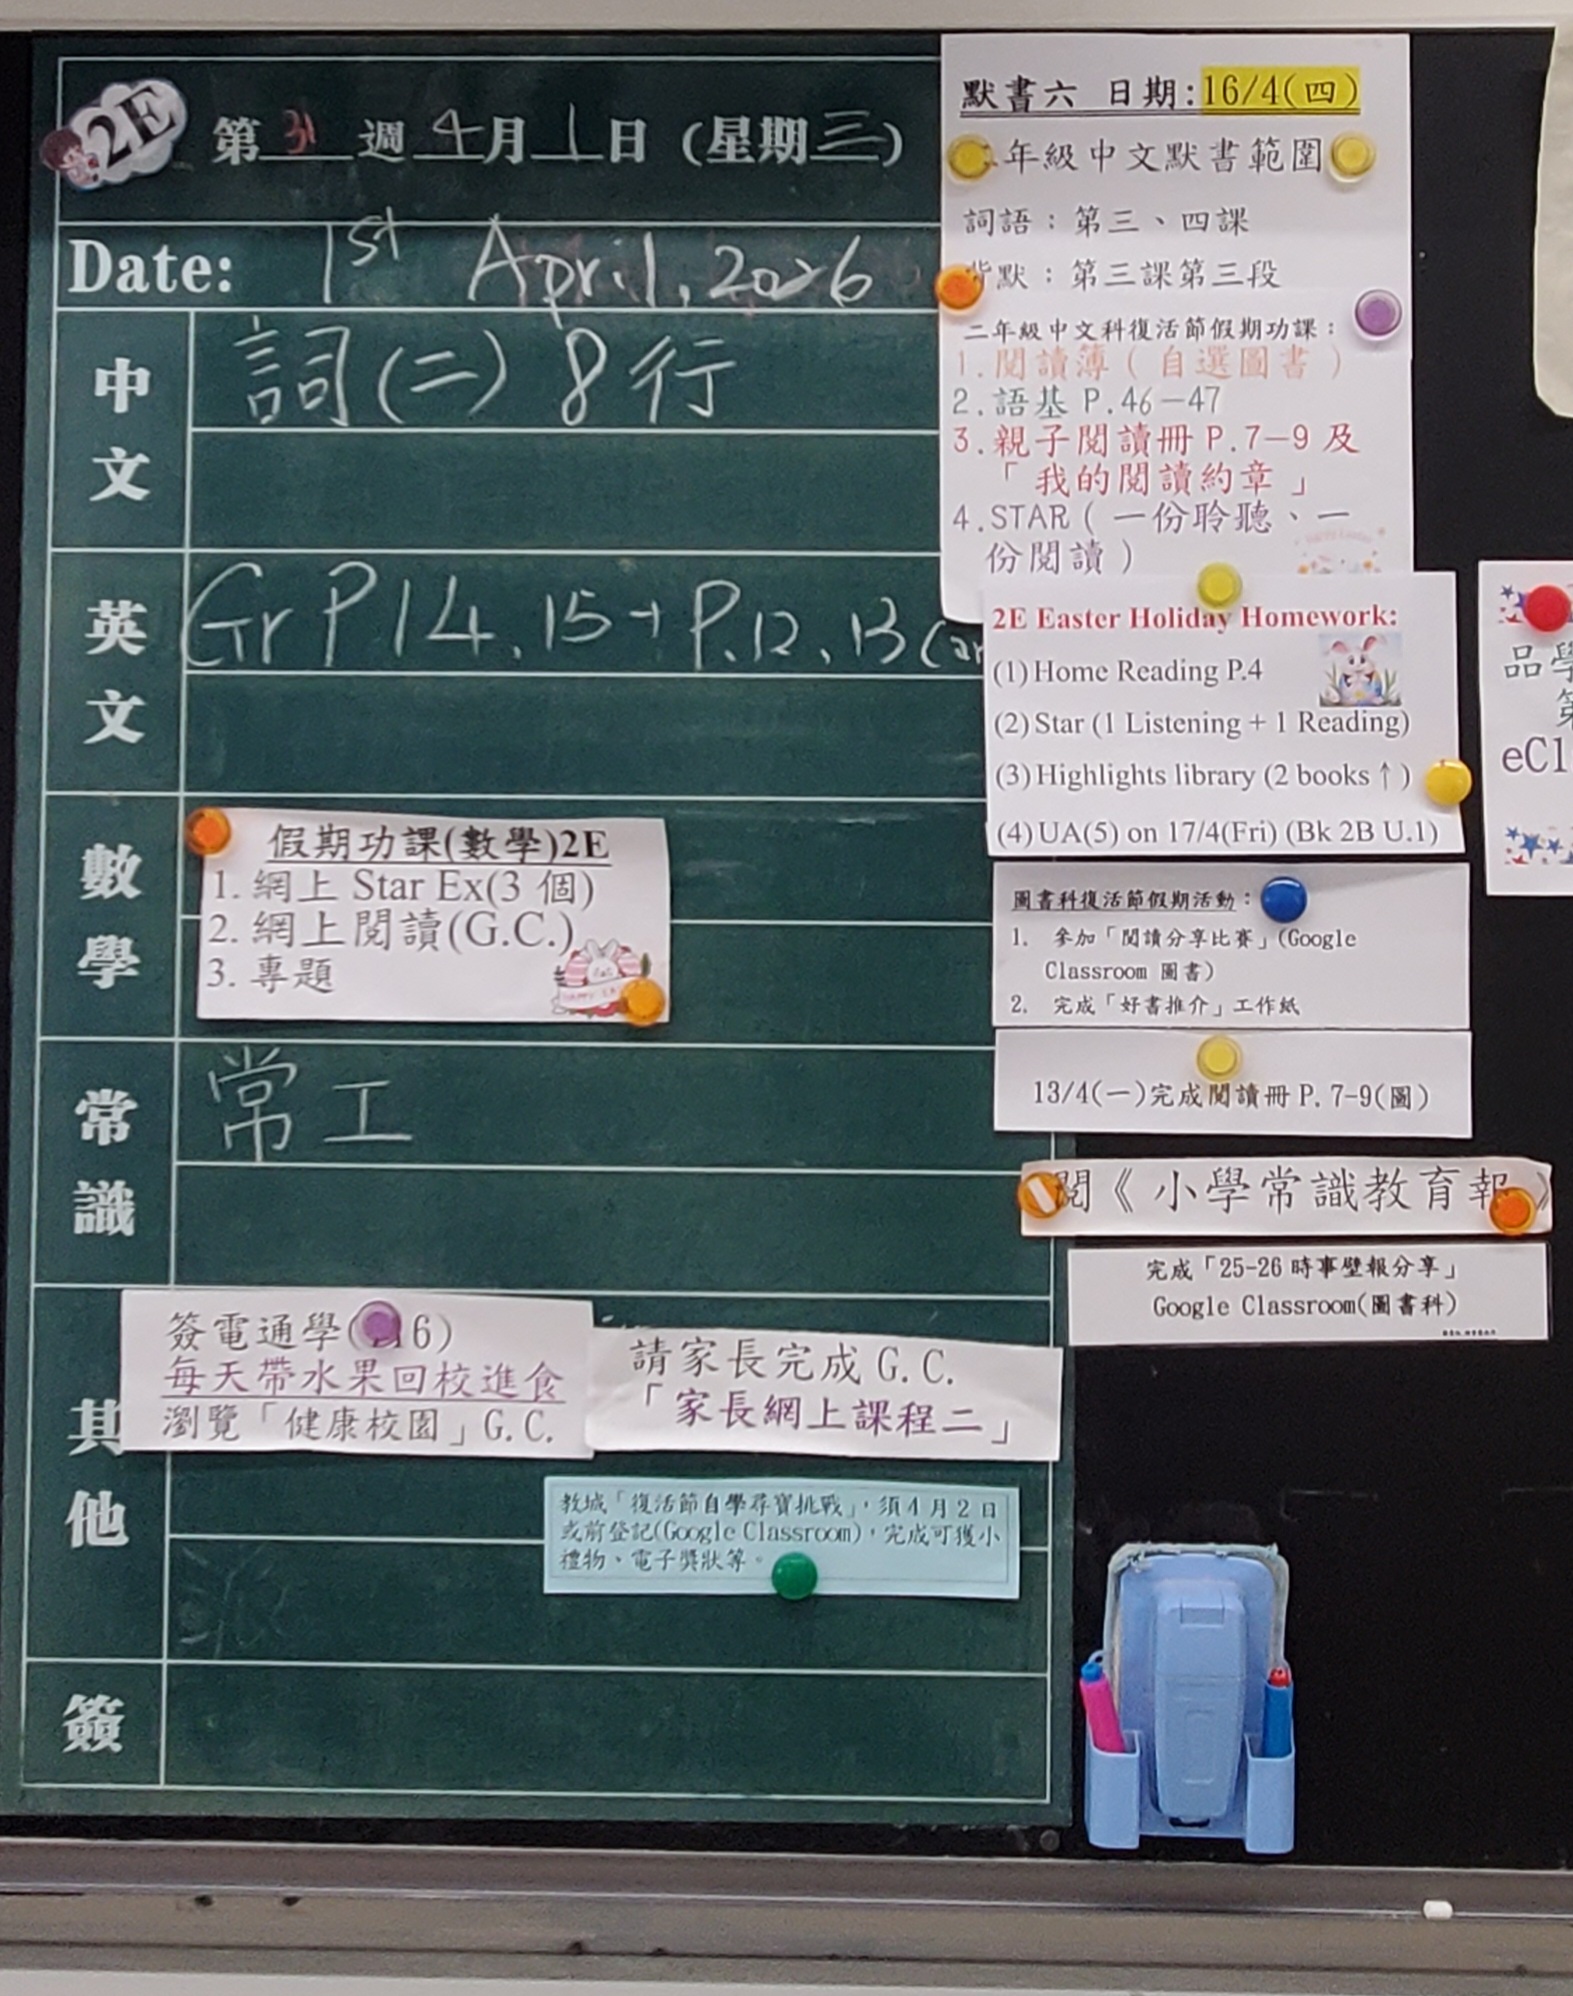 2E
第31週4月1日(星期三)
Date: 1st April, 2026
中文
詞(二) 8行
英文
Gr P14, 15 + P.12, 13
數學
假期功課(數學)2E
1. 網上 Star Ex(3 個)
2. 網上閱讀(G.C.)
3. 專題
常識
常工
其他
簽電通學( 6)
每天帶水果回校進食
瀏覽「健康校園」G.C.
請家長完成 G.C.
「家長網上課程二」
教城「復活節自學尋寶挑戰」，須4月2日
或前登記(Google Classroom)，完成可獲小
禮物、電子獎狀等。
簽
默書六 日期:16/4(四)
年級中文默書範圍
詞語：第三、四課
背默：第三課第三段
二年級中文科復活節假期功課：
1.閱讀簿（自選圖書）
2.語基 P.46－47
3.親子閱讀冊 P.7－9 及
「我的閱讀約章」
4.STAR（一份聆聽、一
份閱讀）
2E Easter Holiday Homework:
(1) Home Reading P.4
(2) Star (1 Listening + 1 Reading)
(3) Highlights library (2 books↑)
(4) UA(5) on 17/4(Fri) (Bk 2B U.1)
圖書科復活節假期活動：
1. 參加「閱讀分享比賽」(Google
Classroom 圖書)
2. 完成「好書推介」工作紙
13/4(一)完成閱讀冊 P. 7-9(圖)
閱《小學常識教育報》
完成「25-26 時事壁報分享」
Google Classroom(圖書科)
品學
第
eCl